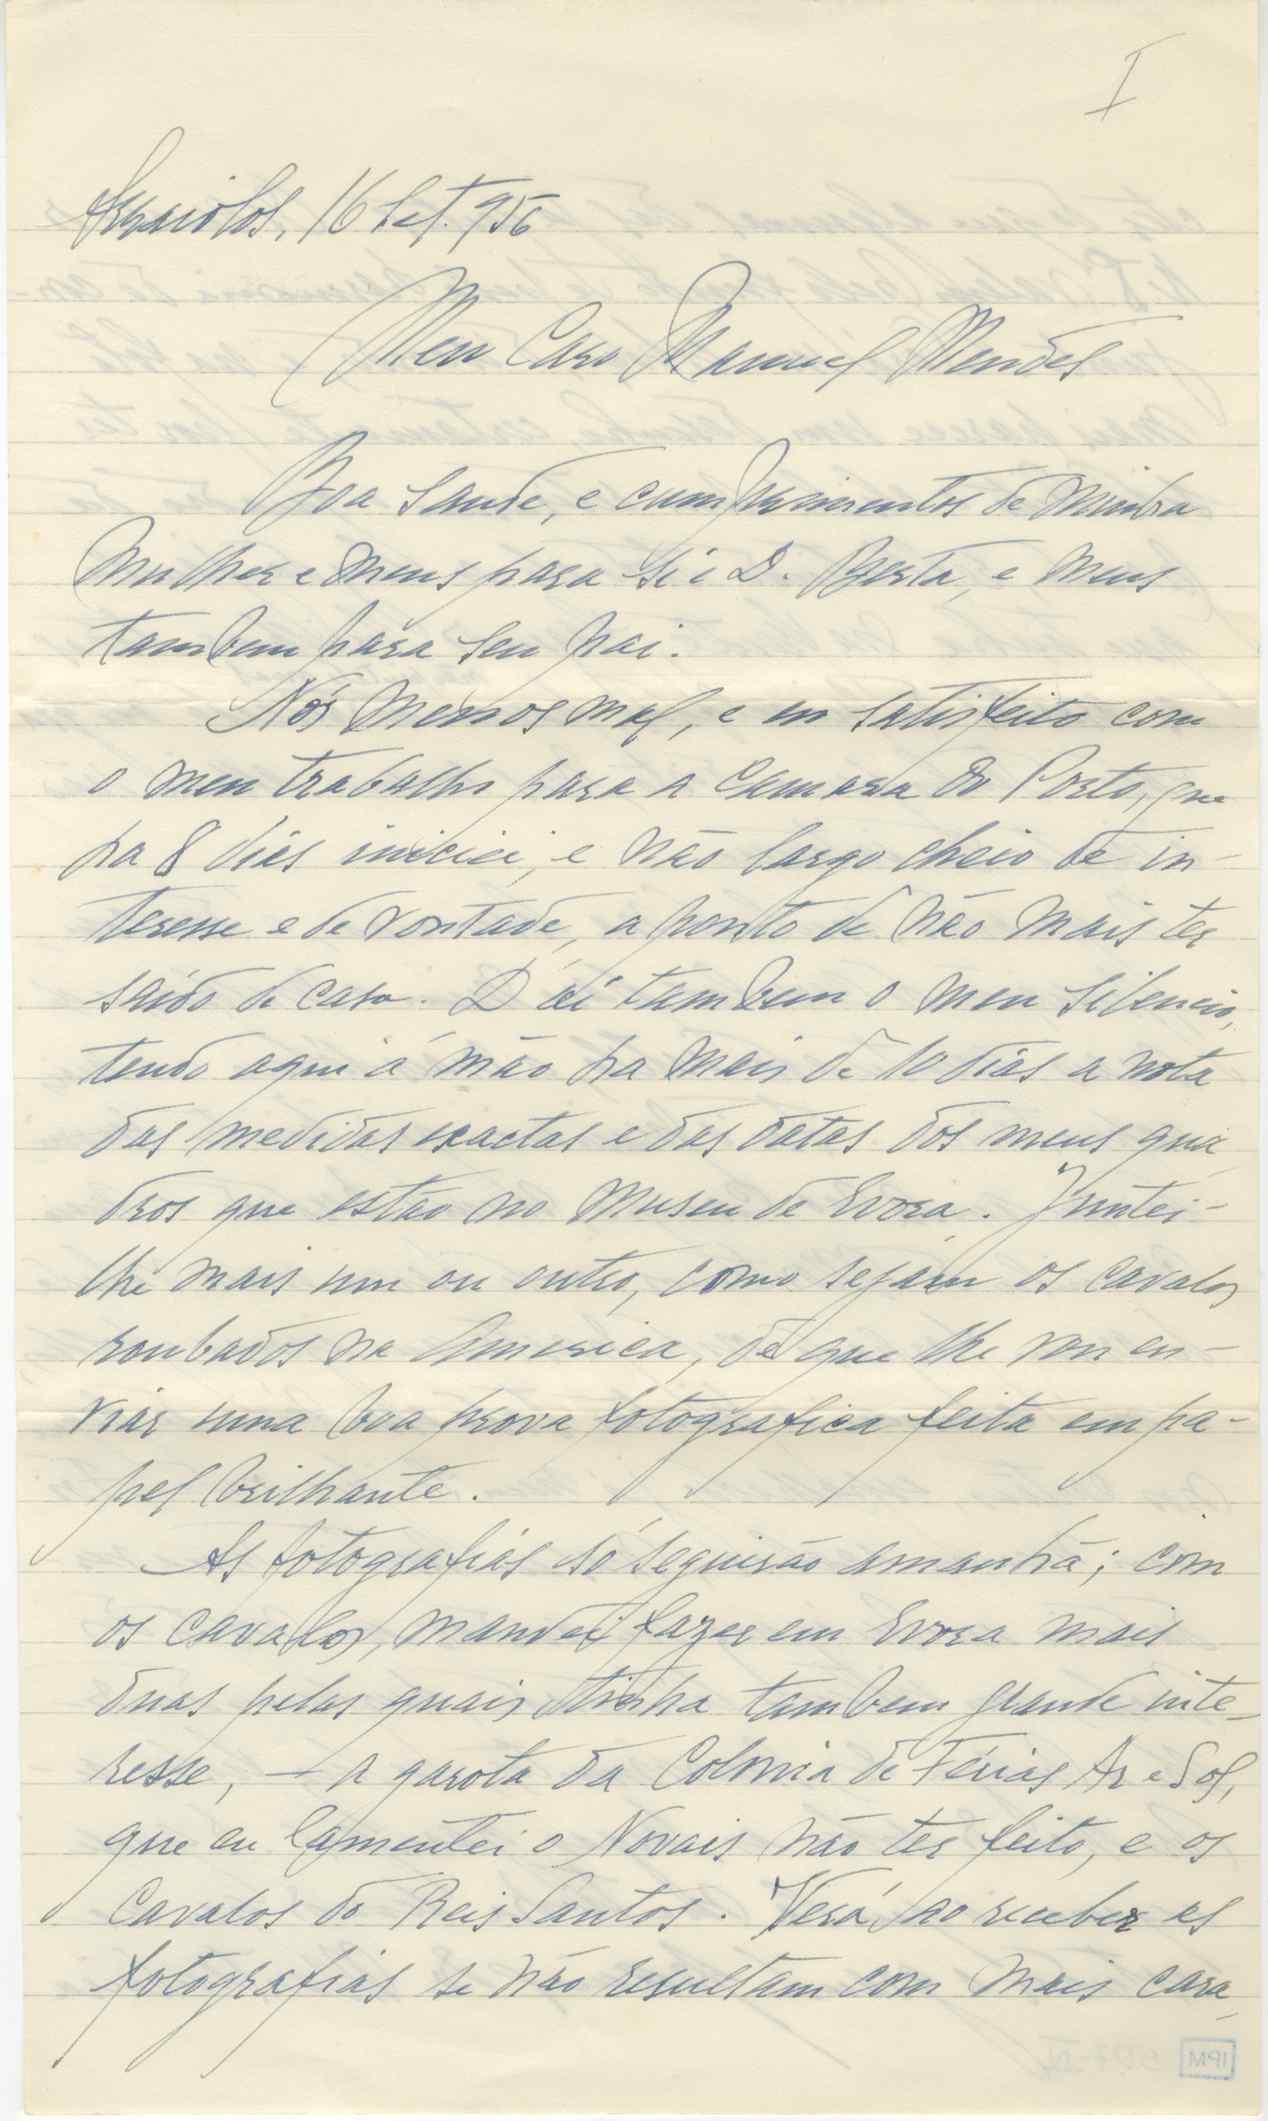 I
Arraiolos, 16 Set. 956
Meu Caro Manuel Mendes
Boa saude, e cumprimentos de minha
mulher e meus para si e D. Berta, e meus
tambem para seu pai.
Nós menos mal, e eu satisfeito com
o meu trabalho para a Camara do Porto, que
ha 8 dias iniciei, e não largo cheio de in-
teresse e de vontade, a ponto de não mais ter
saído de casa. D'aí tambem o meu silencio,
tendo aqui á mão ha mais de 10 dias a nota
das medidas exactas e das datas dos meus qua
dros que estão no Museu de Evora. Juntei-
lhe mais um ou outro, como sejam os cavalos
roubados na America, de que lhe vou en-
viar uma boa prova fotografica feita em pa-
pel brilhante.
As fotografias só seguirão amanhã; com
os cavalos, mandei fazer em Evora mais
duas pelas quais tinha tambem grande inte-
resse, — a garota da Colonia de Férias Ar e Sol,
que eu lamentei o Novais não ter feito, e os
Cavalos do Reis Santos. Verá ao receber as
fotografias se não resultam com mais cara-
IPM